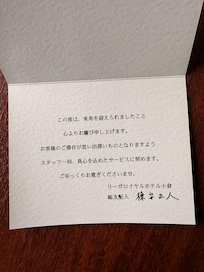 この度は、米寿を迎えられましたこと
心よりお慶び申し上げます。
お客様のご滞在が思い出深いものとなりますよう
スタッフ一同、真心を込めたサービスに努めます。
ごゆっくりお寛ぎくださいませ。
リーガロイヤルホテル小倉
総支配人